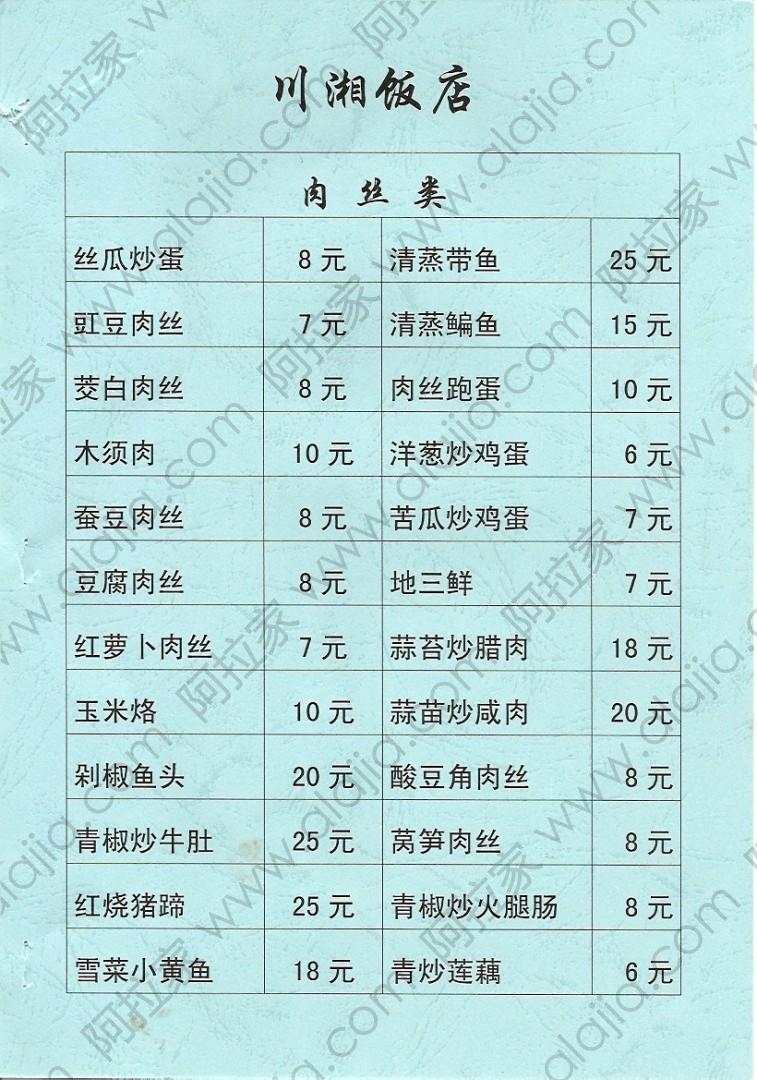 川湘饭店
肉丝类
丝瓜炒蛋 8元 清蒸带鱼 25元
豇豆肉丝 7元 清蒸鳊鱼 15元
茭白肉丝 8元 肉丝跑蛋 10元
木须肉 10元 洋葱炒鸡蛋 6元
蚕豆肉丝 8元 苦瓜炒鸡蛋 7元
豆腐肉丝 8元 地三鲜 7元
红萝卜肉丝 7元 蒜苔炒腊肉 18元
玉米烙 10元 蒜苗炒咸肉 20元
剁椒鱼头 20元 酸豆角肉丝 8元
青椒炒牛肚 25元 莴笋肉丝 8元
红烧猪蹄 25元 青椒炒火腿肠 8元
雪菜小黄鱼 18元 青炒莲藕 6元
阿拉家 www.alajia.com